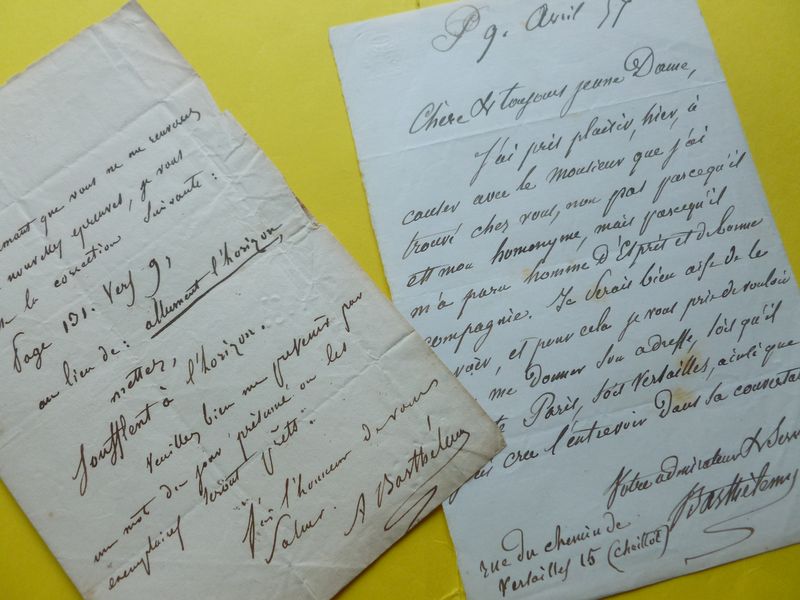 que vous ne me renverrez
nouvelles épreuves, je vous
la correction suivante:
Page 131. Vers 9,
au lieu de: allument l'horizon,
mettez,
soufflent à l'horizon.
Veuillez bien me prévenir par
un mot du jour présumé ou les
exemplaires seront prêts.
J'ai l'honneur de vous
saluer. A Barthélemy
P 9. Avril 57
Chère & toujours jeune Dame,
J'ai pris plaisir, hier, à
causer avec le Monsieur que j'ai
trouvé chez vous, non pas parcequ'il
est mon homonyme, mais parcequ'il
m'a paru homme d'Esprit et de bonne
compagnie. Je serais bien aise de le
voir, et pour cela je vous prie de vouloir
me donner son adresse, soit qu'il
Paris, soit Versailles, ainsi que
j'ai cru l'entrevoir dans sa
Votre admirateur &
Barthélemy
rue du chemin de
Versailles 15 (Chaillot)